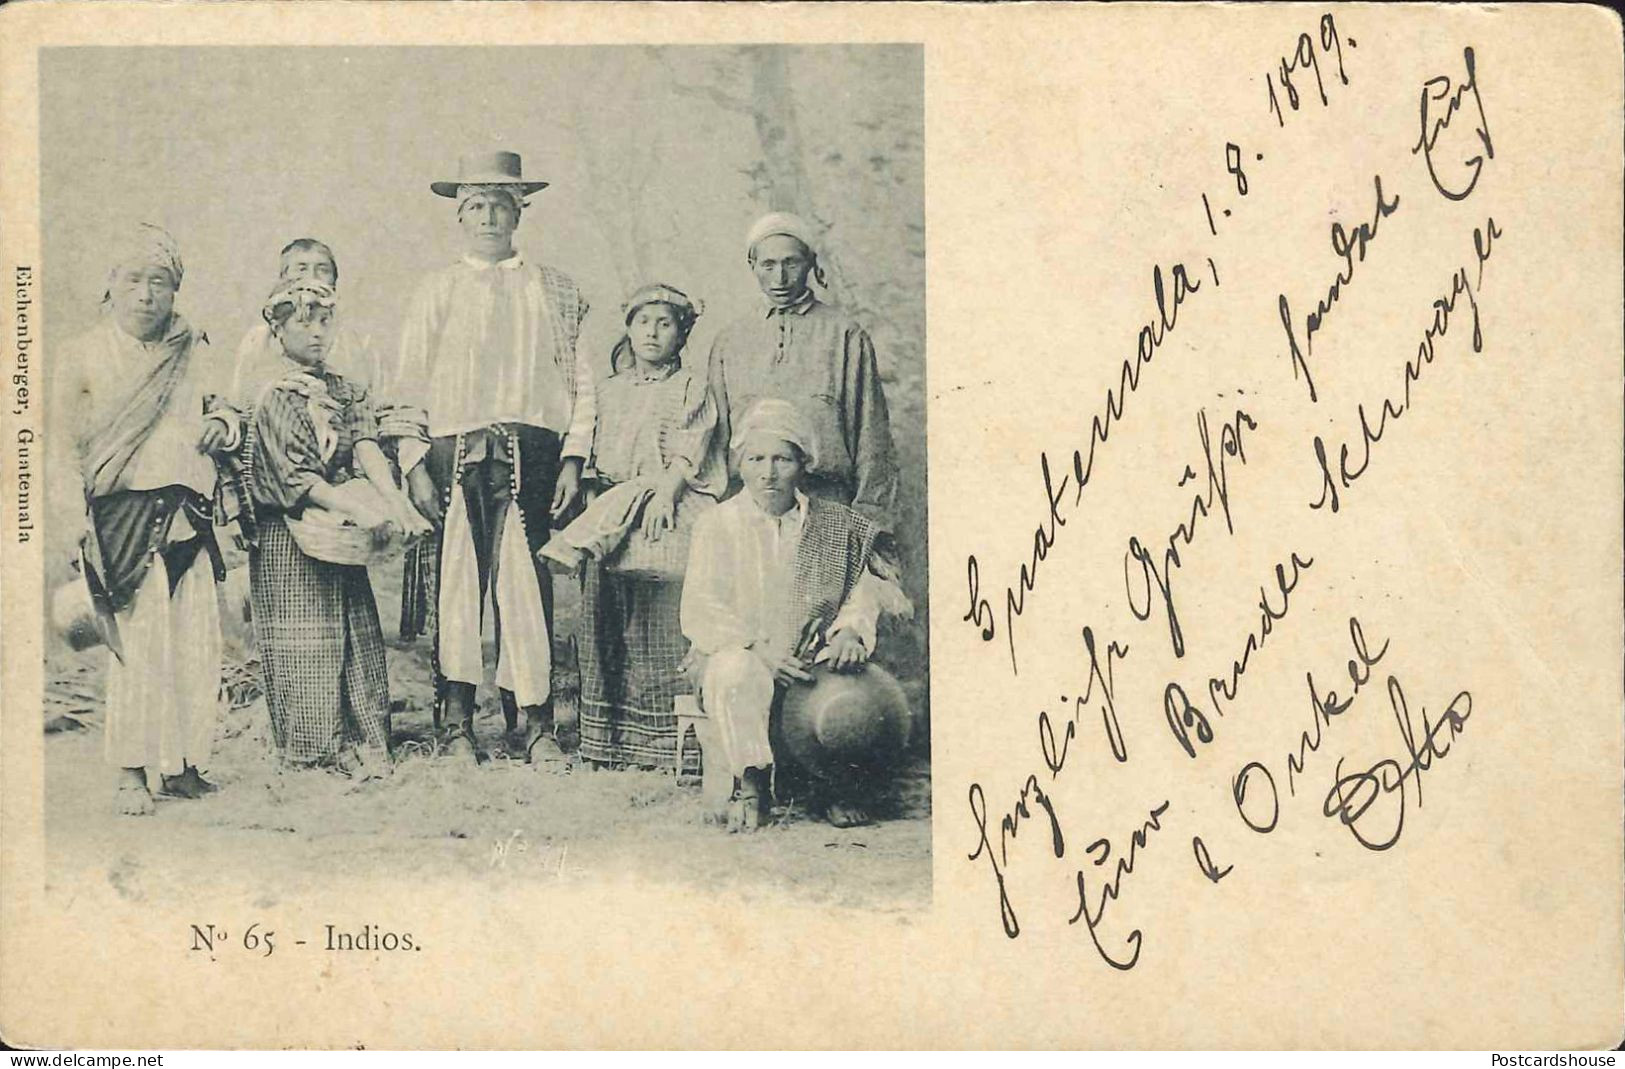 Eichenberger, Guatemala
Nº 11
Nº 65 - Indios.
Guatemala, 1. 8. 1899.
Herzliche Grüsse sendet Euch
Euer Bruder Schwager
& Onkel
Otto
delcampe.net
Postcardshouse